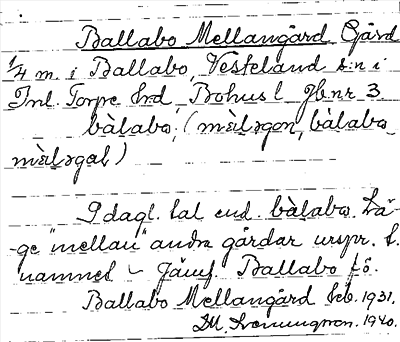 Ballabo Mellangård Gård
1/4 m. i Ballabo, Västerland s:n i
Inl. Torpe hrd, Bohus l. Jbnr 3
bàlabω, (mɛ̀lǝgɑn, bàlabω
mɛ̀lǝgɑḷ)
I dagl. tal end. bàlabω. Lä-
ge "mellan" andra gårdar urspr. t.
namnet – Jämf. Ballabo fö.
Ballabo Mellangård Eeb. 1931.
1940.